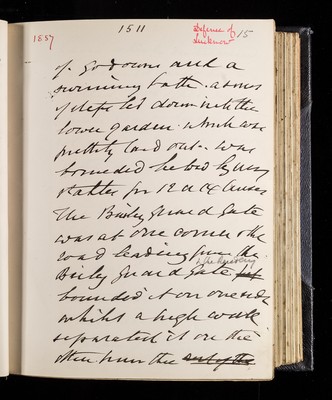 1511
1857
Defence of
Lucknow
15
of godowns and a
swimming bath. a series
of steps led down into the
lower garden which was
prettily laid out. was
bounded behind by my
stables for 12 or 14 horses
The Bailey Guard Gate
was at one corner & the
road leading from the
to the Residency
Bailey Guard Gate
bounded it on one side
whilst a high wall
separated it on the
other from the rest of the